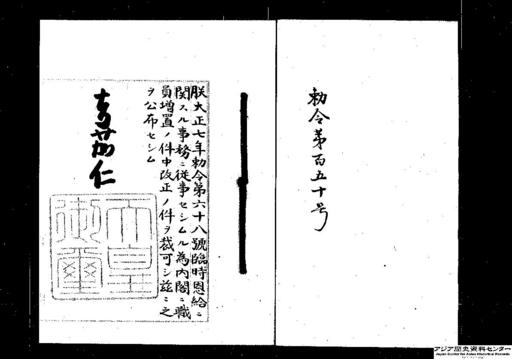 勅令第百五十号
朕大正七年勅令第六十八號臨時恩給ニ
関スル事務ニ従事セシムル為内閣ニ職
員増置ノ件中改正ノ件ヲ裁可シ茲ニ之
ヲ公布セシム
嘉仁
天皇
御璽
アジア歴史資料センター
Japan Center for Asian Historical Records